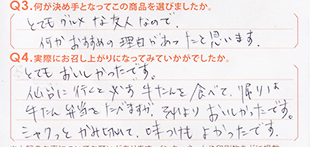 Q3.何が決め手となってこの商品を選びましたか。
とてもグルメな友人なので、
何かおすすめの理由があったと思います。
Q4.実際にお召し上がりになってみていかがでしたか。
とてもおいしかったです。
仙台に行くと必ず牛たんを食べて、帰りは
牛たん弁当をたべますが、それよりおいしかったです。
シャクっとかみ切れて、味つけもよかったです。